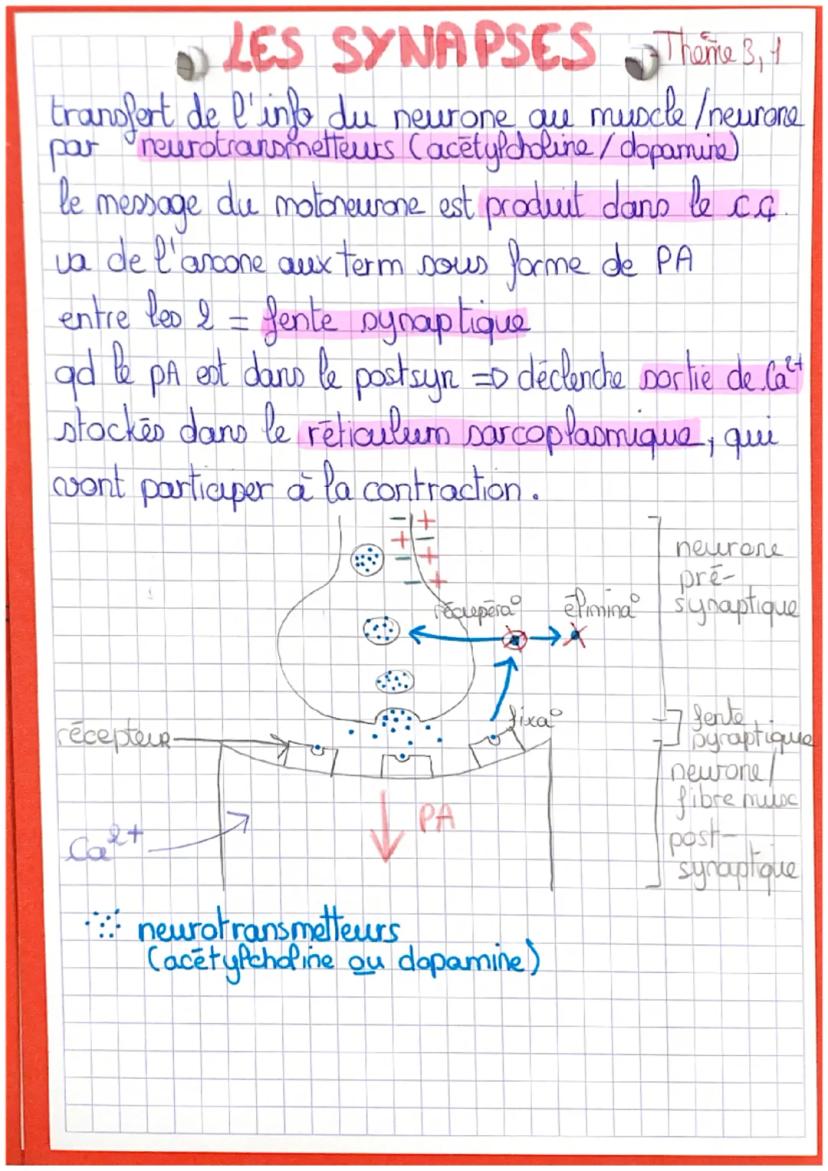 LES SYNAPSES
Thème 3, 1
transfert de l'info du neurone au muscle/neurone
par neurotransmetteurs (acétylcholine/dopamine)
le message du motoneurone est produit dans le c.c.
va de l'axone aux term sous forme de PA
entre les 2 = fente synaptique
qd le pA est dans le postsyn => déclenche sortie de Ca²⁺
stockés dans le réticulum sarcoplasmique, qui
vont participer à la contraction.
- +
+ -
- +
- +
neurone
pré-
synaptique
récupéra° élimina°
fixa°
récepteur
fente
synaptique
neurone/
fibre musc
post-
synaptique
PA
Ca²⁺
neurotransmetteurs
(acétylcholine ou dopamine)